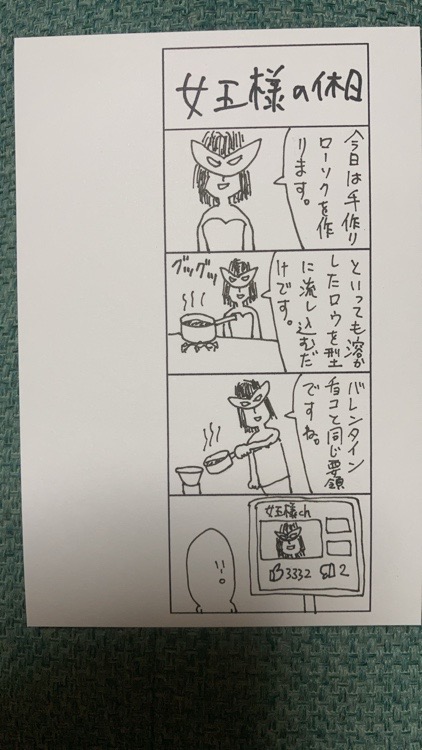 女王様の休日
今日は手作り
ローソクを作
ります。
といっても溶か
したロウを型
に流し込むだ
けです。
グッグッ
バレンタイン
チョコと同じ要領
ですね。
女王様ch
3332 2
!!